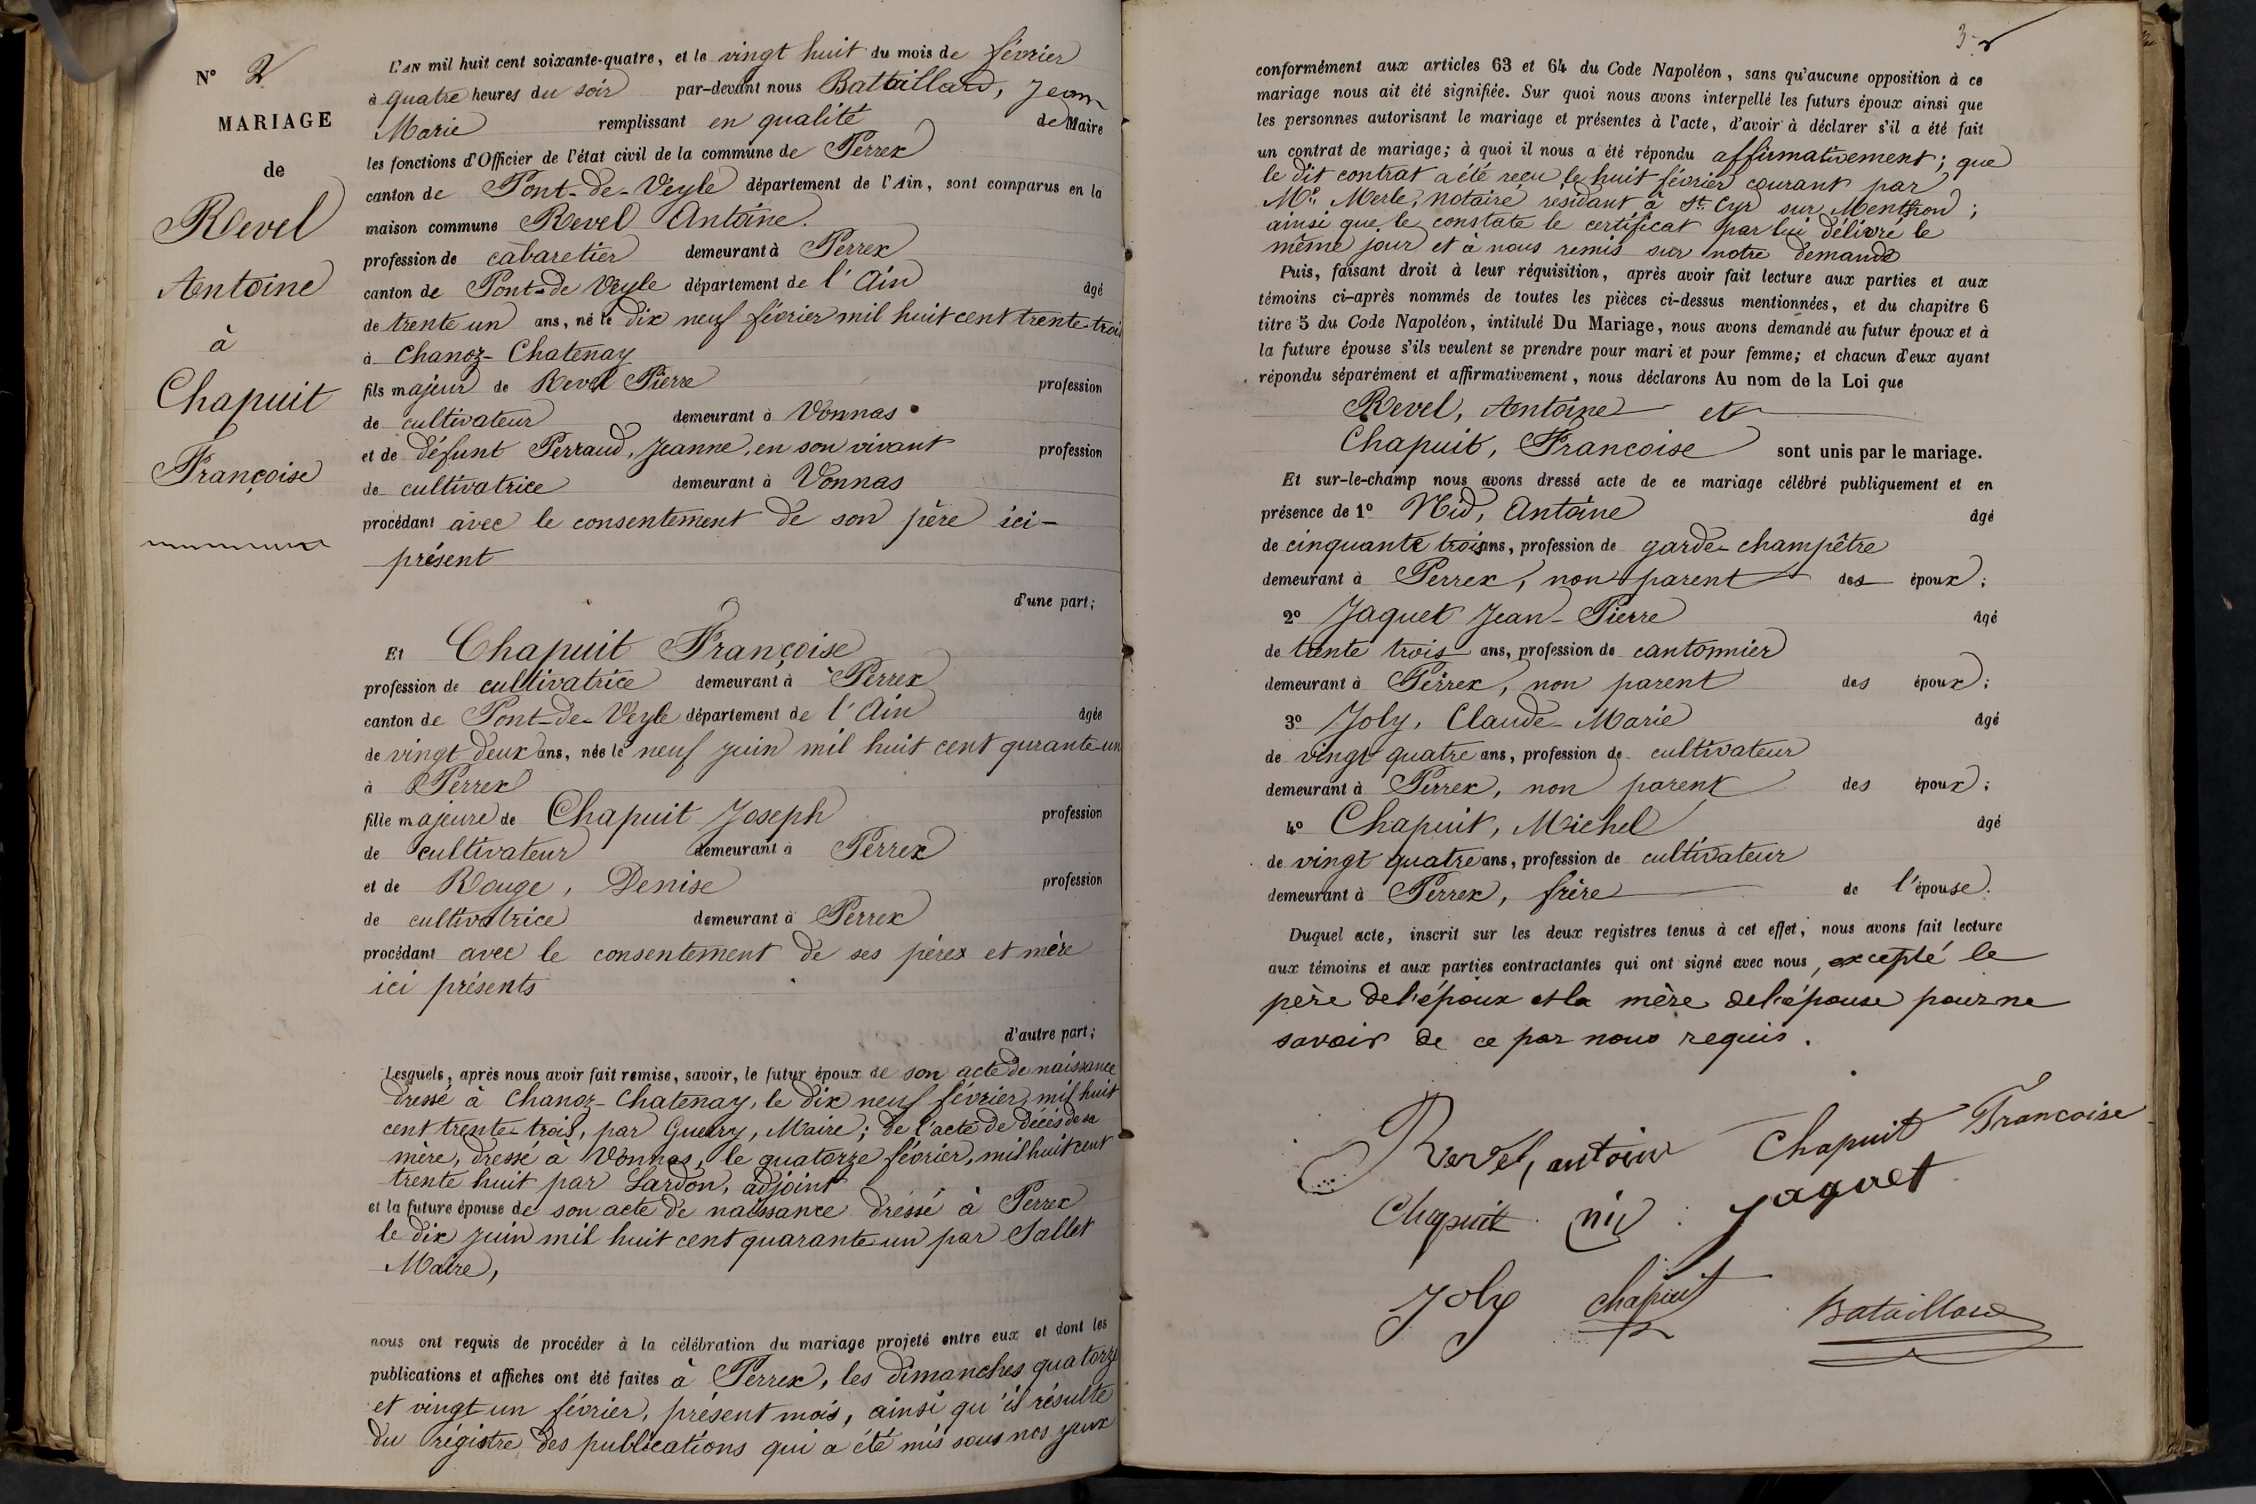 N° 2
MARIAGE
de
Revel
Antoine
à
Chapuit
Françoise
L'AN mil huit cent soixante-quatre, et le vingt huit du mois de février
à quatre heures du soir par-devant nous Battaillard, Jean
Marie remplissant en qualité de Maire
les fonctions d'Officier de l'état civil de la commune de Perrex
canton de Pont-de-Veyle département de l'Ain, sont comparus en la
maison commune Revel Antoine.
profession de cabaretier demeurant à Perrex
canton de Pont-de Veyle département de l'Ain âgé
de trente un ans, né le dix neuf février mil huit cent trente trois
à Chanoz-Chatenay
fils majeur de Revel Pierre profession
de cultivateur demeurant à Vonnas
et de défunt Perraud, Jeanne, en son vivant profession
de cultivatrice demeurant à Vonnas
procédant avec le consentement de son père ici-
présent
d'une part;
Et Chapuit Françoise
profession de cultivatrice demeurant à Perrex
canton de Pont-de-Veyle département de l'Ain âgée
de vingt deux ans, née le neuf juin mil huit cent qurante un
à Perrex
fille majeure de Chapuit Joseph profession
de cultivateur demeurant à Perrex
et de Rouge, Denise profession
de cultivatrice demeurant à Perrex
procédant avec le consentement de ses pères et mère
ici présents
d'autre part;
Lesquels, après nous avoir fait remise, savoir, le futur époux de son acte de naissance
dressé à Chanoz-Chatenay, le dix neuf février, mil huit
cent trente-trois, par Guerry, Maire; de l'acte de décès de sa
mère, dressé à Vonnas, le quatorze février, mil huit cent
trente huit par Lardon, adjoint
et la future épouse de son acte de naissance dressé à Perrex
le dix juin mil huit cent quarante un par Sallet
Maire,
nous ont requis de procéder à la célébration du mariage projeté entre eux et dont les
publications et affiches ont été faites à Perrex, les dimanches quatorze
et vingt un février, présent mois, ainsi qu'il résulte
du régistre des publications qui a été mis sous nos yeux
3
conformément aux articles 63 et 64 du Code Napoléon, sans qu'aucune opposition à ce
mariage nous ait été signifiée. Sur quoi nous avons interpellé les futurs époux ainsi que
les personnes autorisant le mariage et présentes à l'acte, d'avoir à déclarer s'il a été fait
un contrat de mariage; à quoi il nous a été répondu affirmativement; que
le dit contrat a été reçu le huit février courant par
Me Merle, notaire résidant à St. Cyr sur Menthon;
ainsi que le constate le certificat par lui délivré le
même jour et à nous remis sur notre demande
Puis, faisant droit à leur réquisition, après avoir fait lecture aux parties et aux
témoins ci-après nommés de toutes les pièces ci-dessus mentionnées, et du chapitre 6
titre 5 du Code Napoléon, intitulé Du Mariage, nous avons demandé au futur époux et à
la future épouse s'ils veulent se prendre pour mari et pour femme; et chacun d'eux ayant
répondu séparément et affirmativement, nous déclarons Au nom de la Loi que
Revel, Antoine et
Chapuit, Francoise sont unis par le mariage.
Et sur-le-champ nous avons dressé acte de ce mariage célébré publiquement et en
présence de 1° Nid, Antoine âgé
de cinquante trois ans, profession de garde-champêtre
demeurant à Perrex, non parent des époux;
2° Jaquet Jean-Pierre âgé
de trente trois ans, profession de cantonnier
demeurant à Perrex, non parent des époux;
3° Joly, Claude-Marie âgé
de vingt quatre ans, profession de cultivateur
demeurant à Perrex, non parent des époux;
4° Chapuit, Michel âgé
de vingt quatre ans, profession de cultivateur
demeurant à Perrex, frère de l'épouse.
Duquel acte, inscrit sur les deux registres tenus à cet effet, nous avons fait lecture
aux témoins et aux parties contractantes qui ont signé avec nous, excepté le
père de l'époux et la mère de l'épouse pour ne
savoir de ce par nous requis.
Revel, antoine Chapuit Francoise
Chapuit nid Jaquet
Joly Chapuit Bataillard